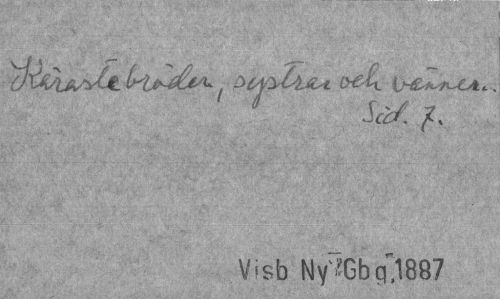 Käraste bröder, systrar och vänner..
Sid. 7.
Visb Ny Gbg, 1887